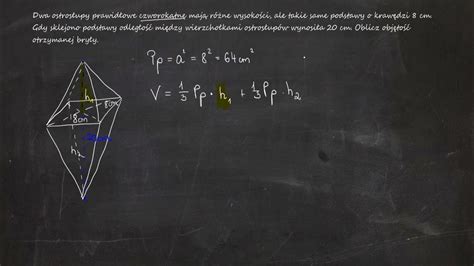 Dwa ostrosłupy prawidłowe czworokątne mają różne wysokości, ale takie same podstawy o krawędzi 8 cm.
Gdy sklejono podstawy odległość między wierzchołkami ostrosłupów wynosiła 20 cm. Oblicz objętość
otrzymanej bryły.
Pp = a² = 8² = 64 cm²
V = 1/3 Pp · h₁ + 1/3 Pp · h₂
h₁
8cm
8cm
20cm
h₂